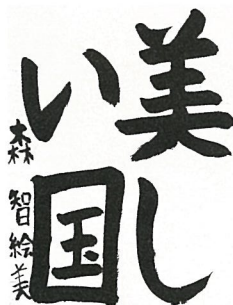 美し
い国
森智絵美